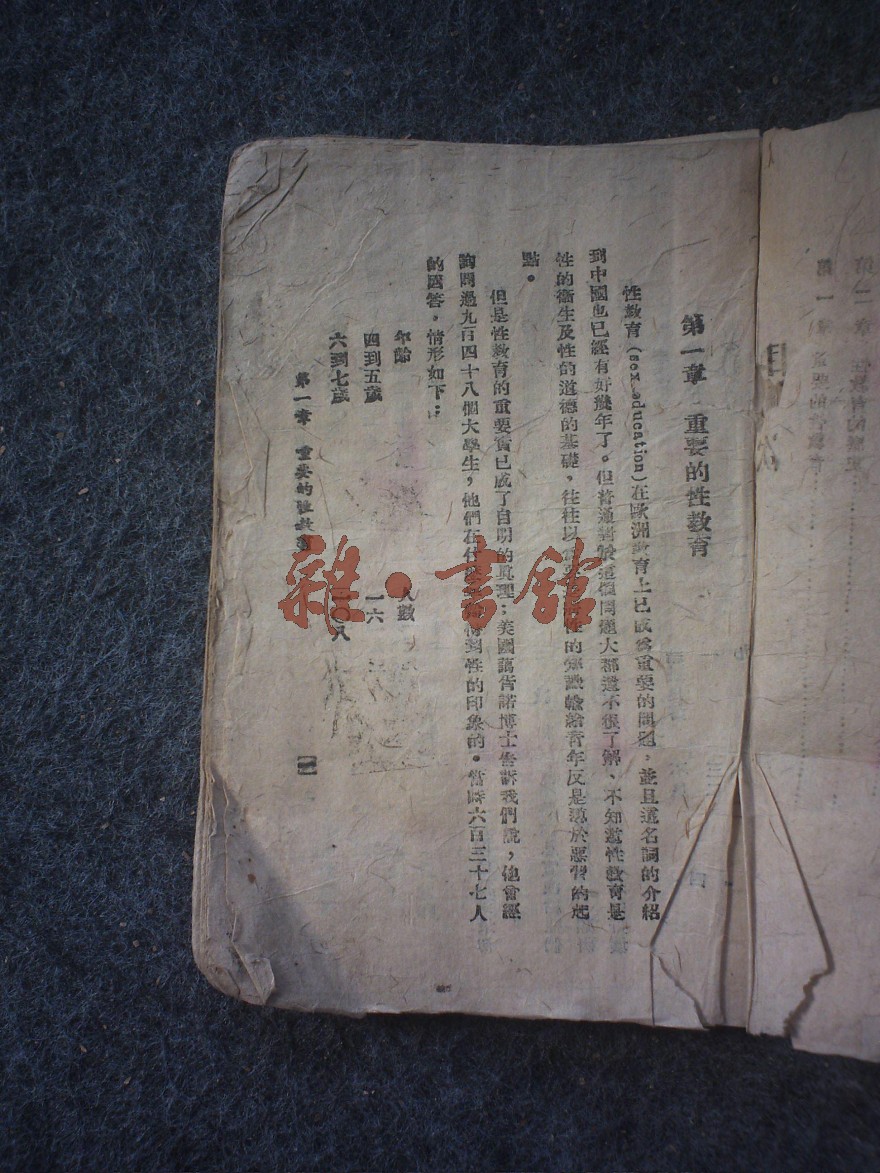 第一章 重要的性教育
性教育(sex education)在歐洲教育上已成爲重要的問題，並且這名詞的介紹
到中國也已經有好幾年了。但普通對於這個問題大都還不很了解、不知道性教育是
性的衞生及性的道德的基礎，往往以爲 性的知識輸給青年反是導於惡習的起
點。
但是性教育的重要實已成了自明的眞理；美國 博士告訴我們說，他曾經
詢問過九百四十八個大學生，他們在什 得到性的印象的。當時六百三十七人
的囘答，情形如下：
年齡 人數
四到五歲 一六
六到七歲 一〇八
第一章 重要的性教育
一
雜·書館
第一章